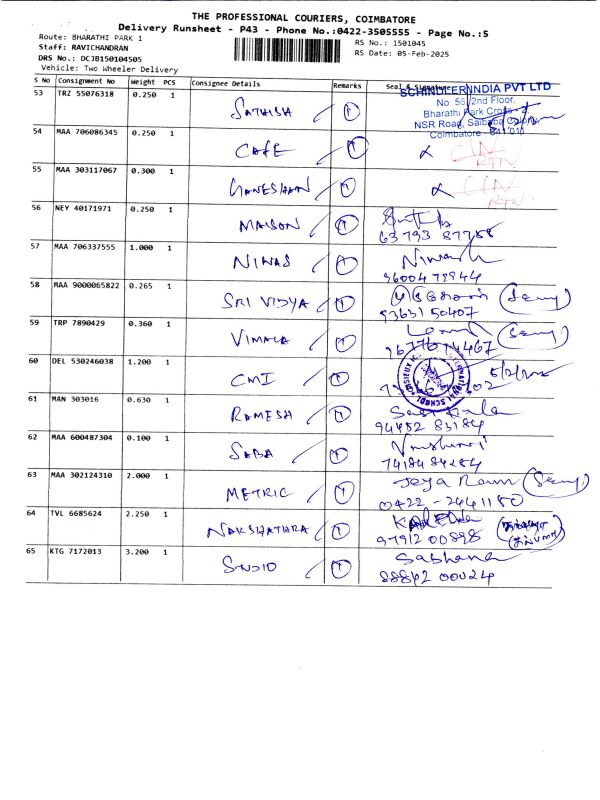 THE PROFESSIONAL COURIERS, COIMBATORE
Delivery Runsheet - P43 - Phone No.:0422-3505555 - Page No.:5
Route: BHARATHI PARK 1
RS No.: 1501045
Staff: RAVICHANDRAN
RS Date: 05-Feb-2025
DRS No.: DCJB150104505
Vehicle: Two Wheeler Delivery
S No Consignment No Weight PCS Consignee Details Remarks Seal & Signature
SCHINDLER INDIA PVT LTD
No. 56, 2nd Floor,
Bharathi Park Cross - 2,
NSR Road, Saibaba Colony,
Coimbatore - 641 011
53 TRZ 55076318 0.250 1 SATHISH 1
54 MAA 706086345 0.250 1 CAFE 1
55 MAA 303117067 0.300 1 GANESHAN 1
56 NEY 40171971 0.250 1 MAISON 1
63793 87768
57 MAA 706337555 1.000 1 NIWAS 1 Niwash
9600479944
58 MAA 9000065822 0.265 1 SRI VIDYA 1
9363150407
59 TRP 7890429 0.360 1 VIMALA 1
60 DEL 530246038 1.200 1 CMI 1
61 MAN 303016 0.630 1 RAMESH 1 Sasi Kala
94452 83184
62 MAA 600487304 0.100 1 SABA 1
74184 84284
63 MAA 302124310 2.000 1 METRIC 1 Jeya Ram
0422 - 2441150
64 TVL 6685624 2.250 1 NAKSHATHRA 1
97912 00898
65 KTG 7172013 3.200 1 STUDIO 1 Sabhana
88842 00024